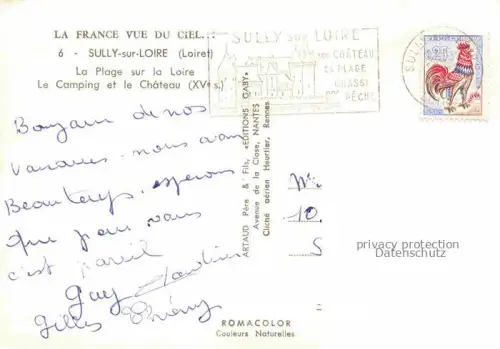 LA FRANCE VUE DU CIEL...
6 - SULLY-sur-LOIRE (Loiret)
La Plage sur la Loire
Le Camping et le Château (XVe s.)
SULLY sur LOIRE
SON CHÂTEAU
SA PLAGE
CHASSE
PÊCHE
SULLY
Bonjour de nos
vacances. nous avons
Beau temps, espérons
que pour vous
c'est pareil
Guy
Gilles Thierry
ARTAUD Père & Fils, «EDITIONS GABY»
Avenue de la Close, NANTES
Cliché aérien Heurtier, Rennes
10
S
privacy protection
Datenschutz
ROMACOLOR
Couleurs Naturelles